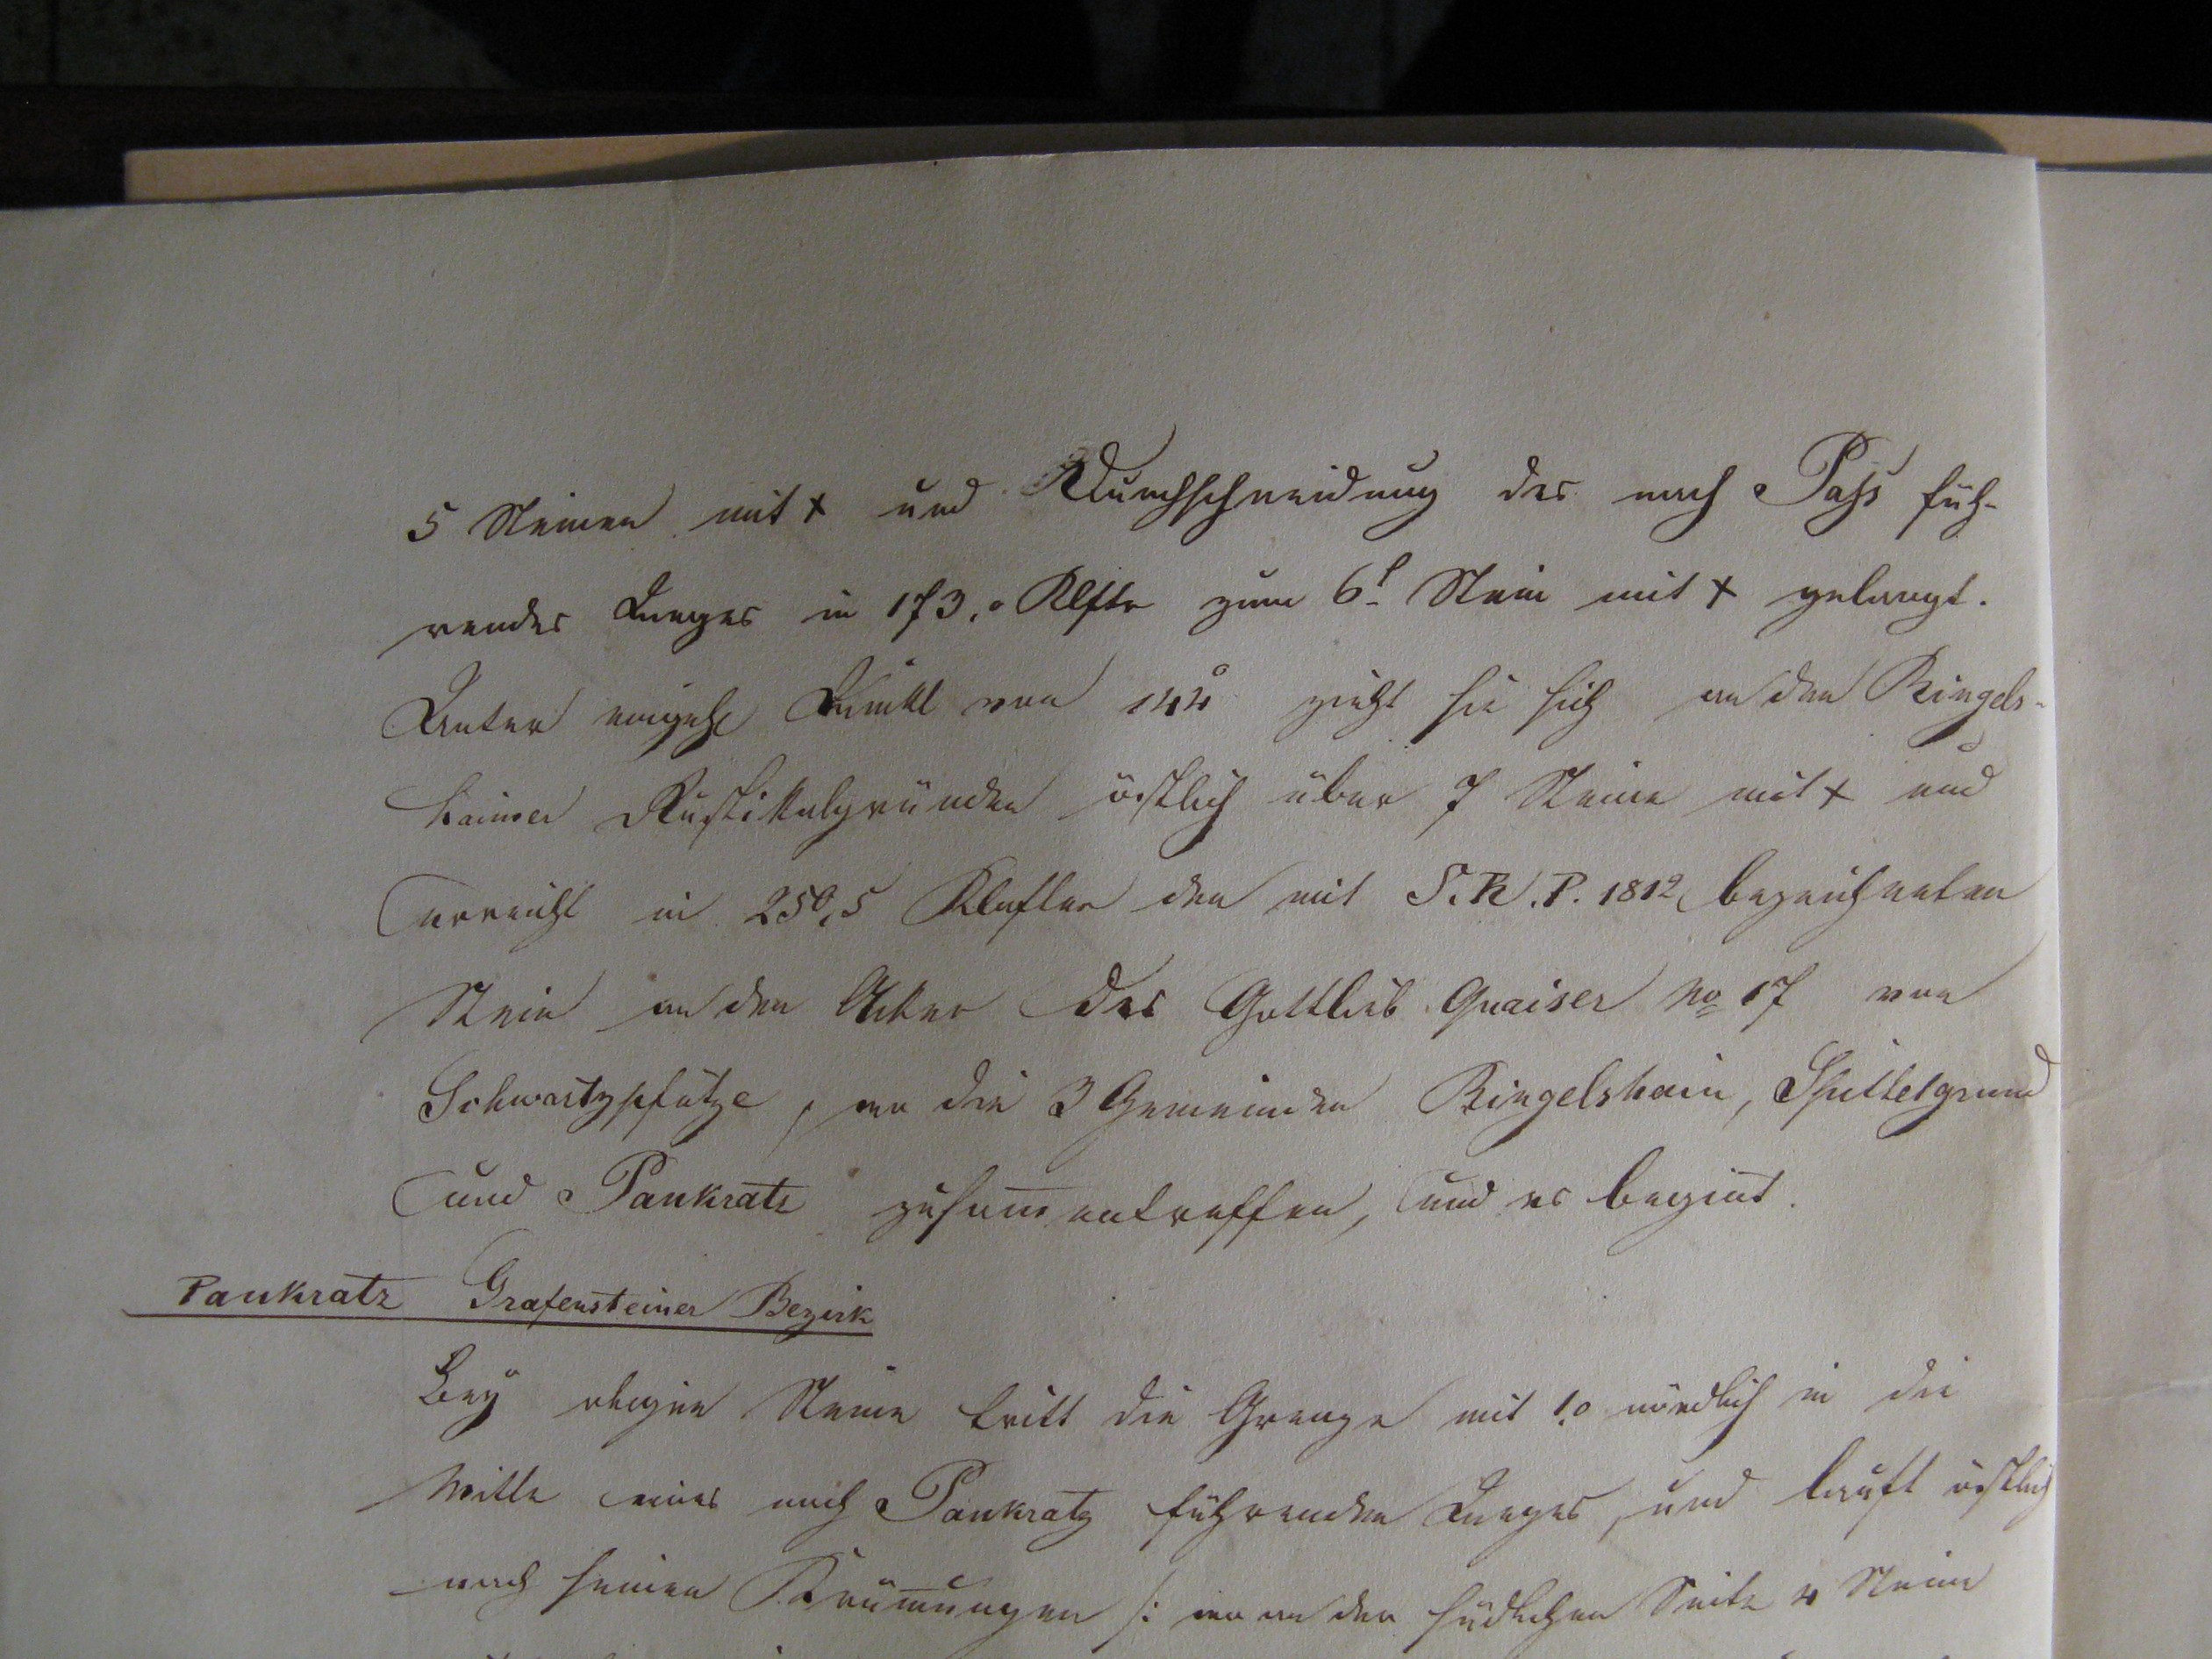 5 Steinen mit + und Durchschneidung des nach Paß füh-
renden Weges in 173,0 Klftr zum 6t Stein mit + gelangt.
Unter eingehd Winkl von 144° zieht sie sich an den Ringels-
hainer Rustikalgründen östlich über 7 Steine mit + und
erreicht in 250,5 Klafter den mit S.R.P. 1812 bezeichneten
Stein an den Acker des Gottlieb Quaiser No 17 von
Schwartzpfütze, wo die 3 Gemeinden Ringelshain, Spittelgrund
und Pankratz zusam̅entreffen, und es begin̅t.
Pankratz Grafensteiner Bezirk
Bey obigen Steine tritt die Grenze mit 1,0 nördlich in die
Mitte eines nach Pankratz führenden Weges, und lauft östlich
nach seinen Krüm̅ungen /: wo an der südlichen Seite 4 Steine